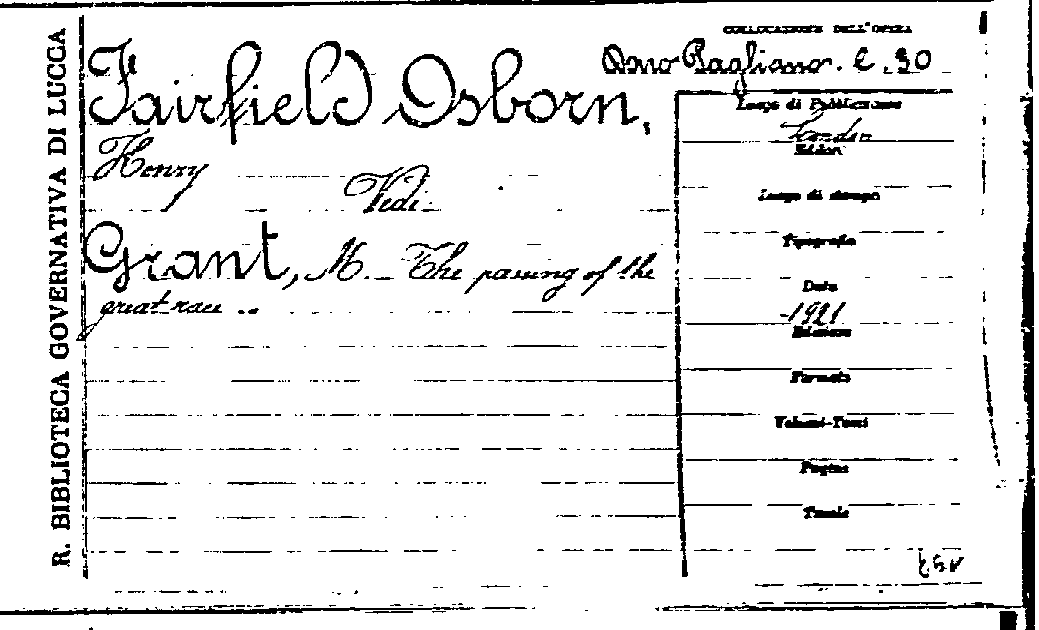 R. BIBLIOTECA GOVERNATIVA DI LUCCA
COLLOCAZIONE DELL'OPERA
Dono Pagliano. C. 30
Fairfield Osborn,
Henry
Vedi
Grant, M. - The passing of the
great race ..
Luogo di Pubblicazione
London
Editori
Luogo di stampa
Tipografia
Data
1921
Edizione
Formato
Volumi-Tomi
Pagine
Tavole